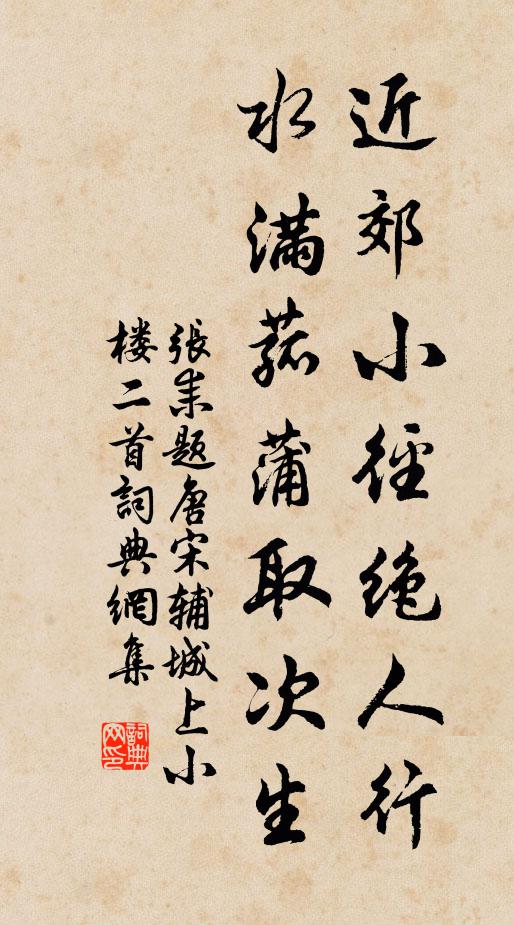 近郊小徑絶人行
水滿菰蒲取次生
張耒題唐宋輔城上小
楼二首詞典網集
詞典网印